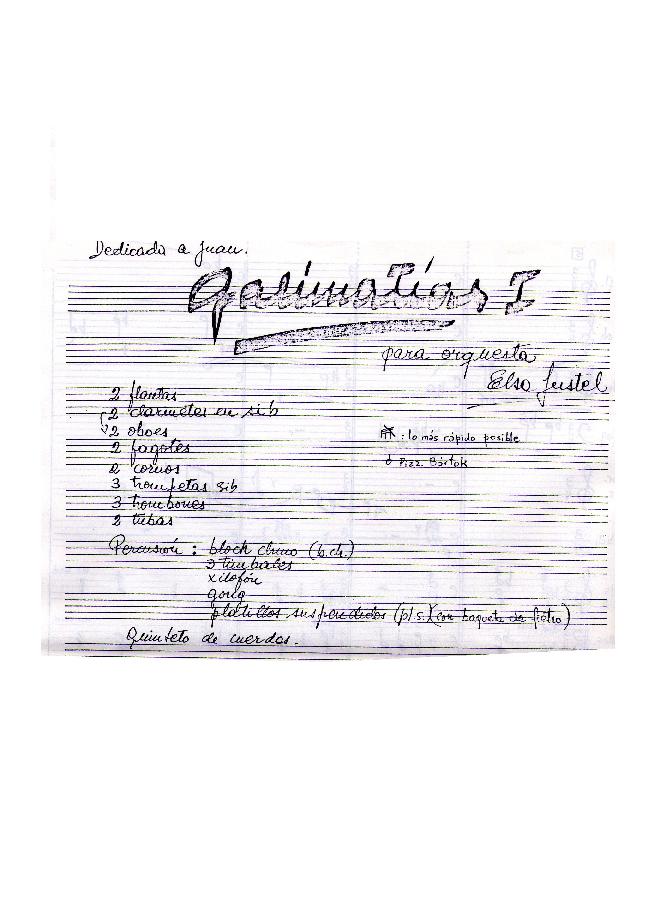 Dedicada a Juan.
Galimatías I
para orquesta
Elsa Justel
2 flautas
2 clarinetes en sib
2 oboes
2 fagotes
2 cornos
3 trompetas sib
3 trombones
2 tubas
: lo más rápido posible
Pizz. Bártok
Percusión: block chino (b.ch.)
3 timbales
xilofón
gong
platillos suspendidos (pl.s.) (con baqueta de fieltro)
Quinteto de cuerdas.